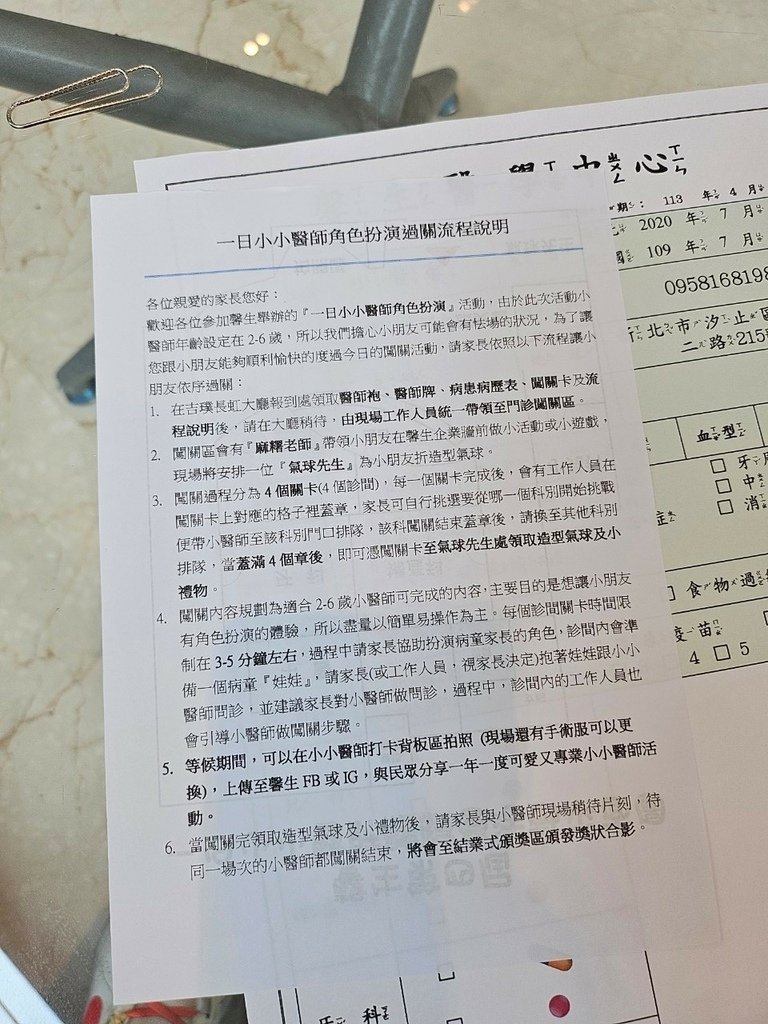 一日小小醫師角色扮演過關流程說明
各位親愛的家長您好：
歡迎各位參加馨生舉辦的『一日小小醫師角色扮演』活動，由於此次活動小
醫師年齡設定在 2-6 歲，所以我們擔心小朋友可能會有怯場的狀況，為了讓
您跟小朋友能夠順利愉快的度過今日的闖關活動，請家長依照以下流程讓小
朋友依序過關：
1. 在吉璞長虹大廳報到處領取醫師袍、醫師牌、病患病歷表、闖關卡及流
程說明後，請在大廳稍待，由現場工作人員統一帶領至門診闖關區。
2. 闖關區會有『麻糬老師』帶領小朋友在馨生企業牆前做小活動或小遊戲，
現場將安排一位『氣球先生』為小朋友折造型氣球。
3. 闖關過程分為 4 個關卡(4 個診間)，每一個關卡完成後，會有工作人員在
闖關卡上對應的格子裡蓋章，家長可自行挑選要從哪一個科別開始挑戰
便帶小醫師至該科別門口排隊，該科闖關結束蓋章後，請換至其他科別
排隊，當蓋滿 4 個章後，即可憑闖關卡至氣球先生處領取造型氣球及小
禮物。
4. 闖關內容規劃為適合 2-6 歲小醫師可完成的內容，主要目的是想讓小朋友
有角色扮演的體驗，所以盡量以簡單易操作為主。每個診間關卡時間限
制在 3-5 分鐘左右，過程中請家長協助扮演病童家長的角色，診間內會準
備一個病童『娃娃』，請家長(或工作人員，視家長決定)抱著娃娃跟小小
醫師問診，並建議家長對小醫師做問診，過程中，診間內的工作人員也
會引導小醫師做闖關步驟。
5. 等候期間，可以在小小醫師打卡背板區拍照 (現場還有手術服可以更
換)，上傳至馨生 FB 或 IG，與民眾分享一年一度可愛又專業小小醫師活
動。
6. 當闖關完領取造型氣球及小禮物後，請家長與小醫師現場稍待片刻，待
同一場次的小醫師都闖關結束，將會至結業式頒獎區頒發獎狀合影。
學 中 心
期： 113 年 4 月
2020 年 7 月
國 109 年 7 月
0958168198
北 市 汐 止 區
二 路 215
血 型
□ 牙
□ 中
□ 消
症
食 物 過
疫 苗
4 □ 5
牙 科